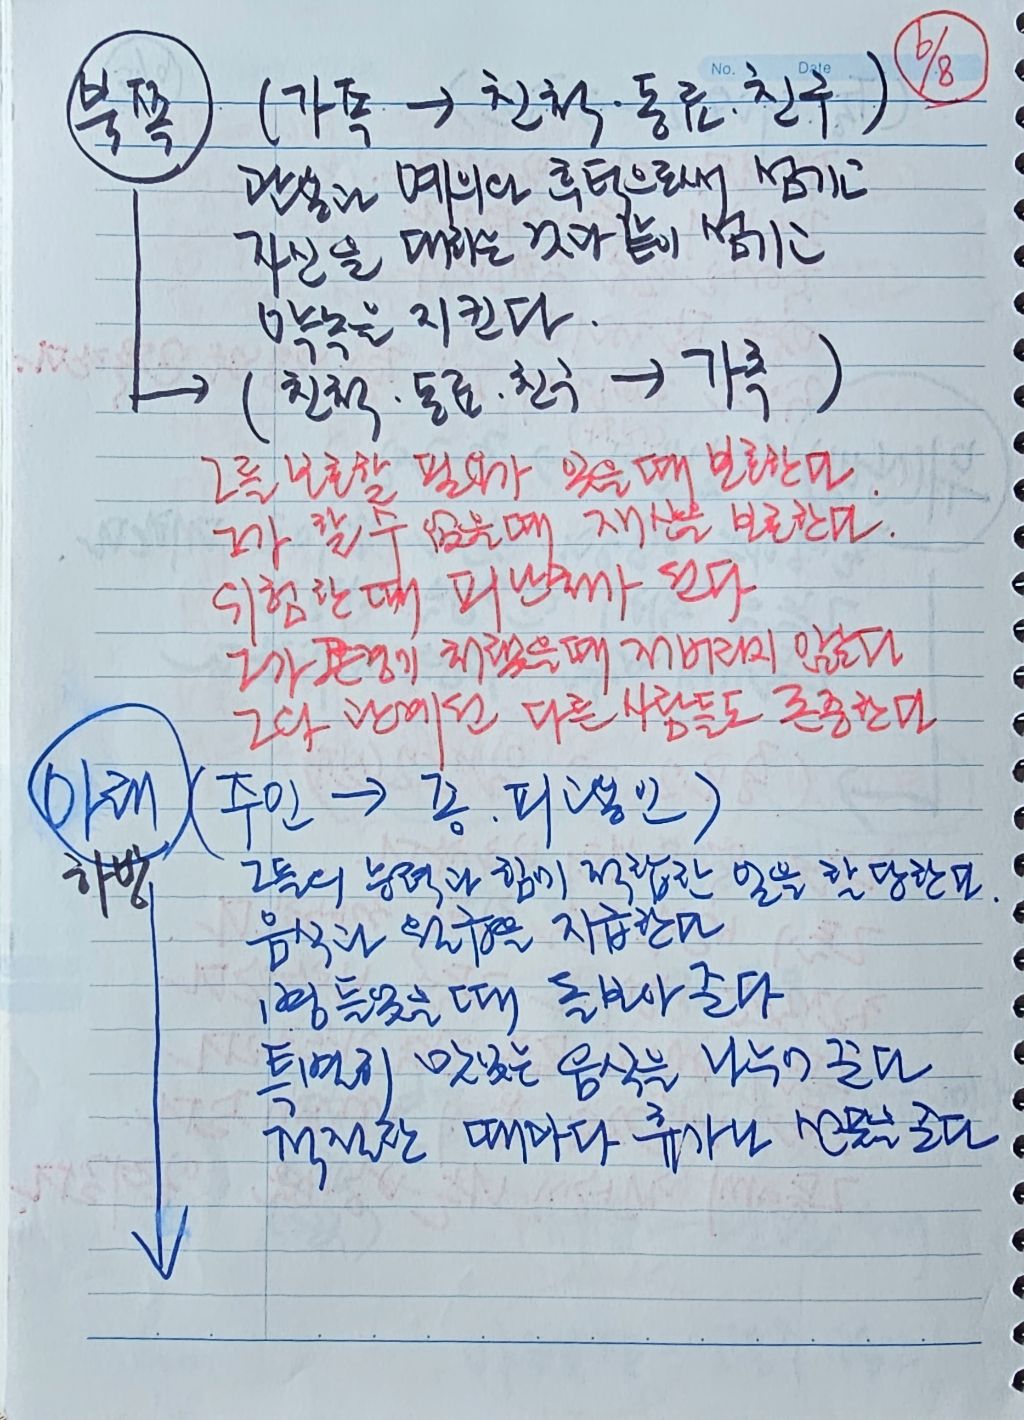 6/8
No. Date
북쪽 (가족 → 친척·동료·친구)
관용과 예의와 후덕으로써 섬기고
자신을 대하는 것과 같이 섬기고
약속을 지킨다.
(친척·동료·친구 → 가족)
그를 보호할 필요가 있을때 보호한다.
그가 할 수 없을때 재산을 보호한다.
위험할때 피난처가 된다
그가 곤경에 처했을때 저버리지 않는다
그와 관계된 다른 사람들도 존중한다
아래 (주인 → 고용·피고용인)
하방
그들의 능력과 힘에 적합한 일을 할당한다.
음식과 임금을 지급한다
병들었을때 돌보아 준다
특별히 맛있는 음식을 나누어 준다
적절한 때마다 휴가나 선물을 준다